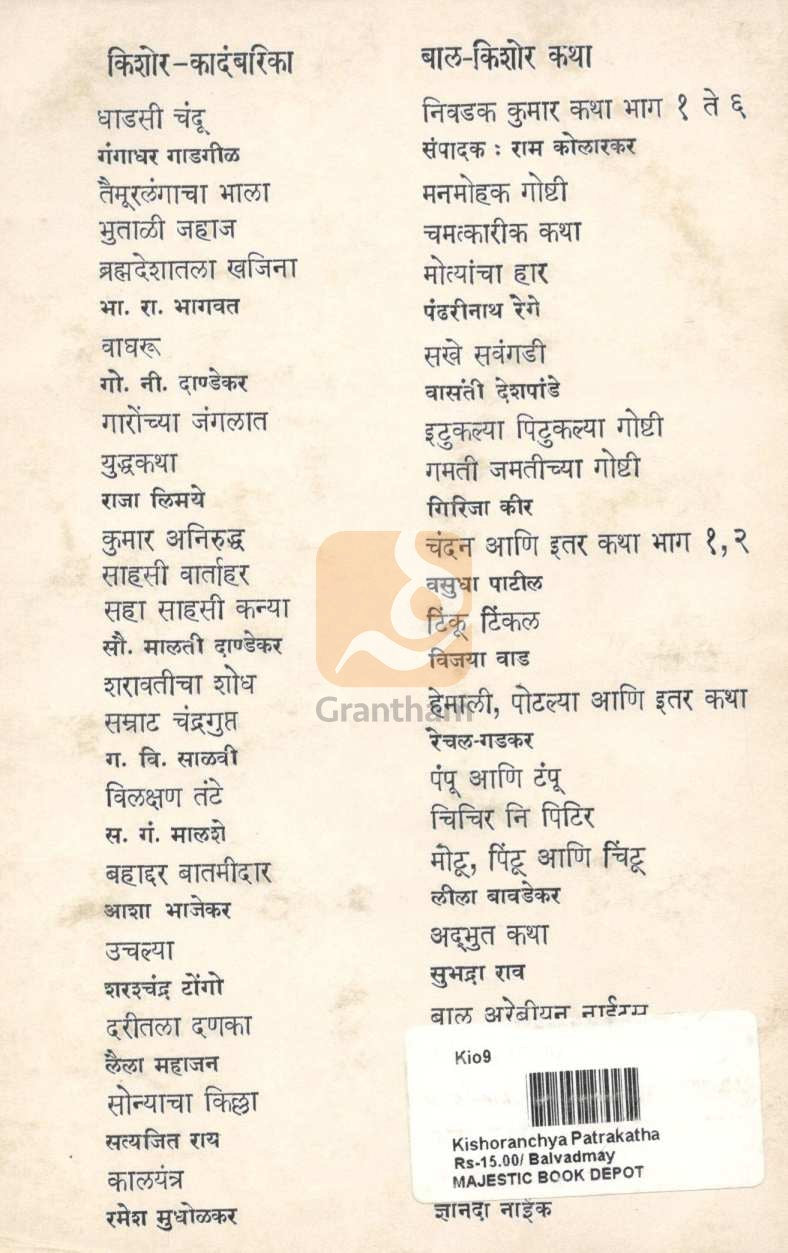 किशोर-कादंबरिका
धाडसी चंदू
गंगाधर गाडगीळ
तैमूरलंगाचा भाला
भुताळी जहाज
ब्रह्मदेशातला खजिना
भा. रा. भागवत
वाघरू
गो. नी. दाण्डेकर
गारोंच्या जंगलात
युद्धकथा
राजा लिमये
कुमार अनिरुद्ध
साहसी वार्ताहर
सहा साहसी कन्या
सौ. मालती दाण्डेकर
शरावतीचा शोध
सम्राट चंद्रगुप्त
ग. वि. साळवी
विलक्षण तंटे
स. गं. मालशे
बहाद्दर बातमीदार
आशा भाजेकर
उचल्या
शरश्चंद्र टोंगो
दरीतला दणका
लैला महाजन
सोन्याचा किल्ला
सत्यजित राय
कालयंत्र
रमेश मुधोळकर
बाल-किशोर कथा
निवडक कुमार कथा भाग १ ते ६
संपादक : राम कोलारकर
मनमोहक गोष्टी
चमत्कारीक कथा
मोत्यांचा हार
पंढरीनाथ रेगे
सखे सवंगडी
वासंती देशपांडे
इटुकल्या पिटुकल्या गोष्टी
गमती जमतीच्या गोष्टी
गिरिजा कीर
चंदन आणि इतर कथा भाग १,२
वसुधा पाटील
टिंकू टिंकल
विजया वाड
हेमाली, पोटल्या आणि इतर कथा
रेचल-गडकर
पंपू आणि टंपू
चिचिर नि पिटिर
मोटू, पिंटू आणि चिंटू
लीला बावडेकर
अद्भुत कथा
सुभद्रा राव
बाल अरेबीयन नाईटस
Kio9
Kishoranchya Patrakatha
Rs-15.00/ Balvadmay
MAJESTIC BOOK DEPOT
ज्ञानदा नाईक